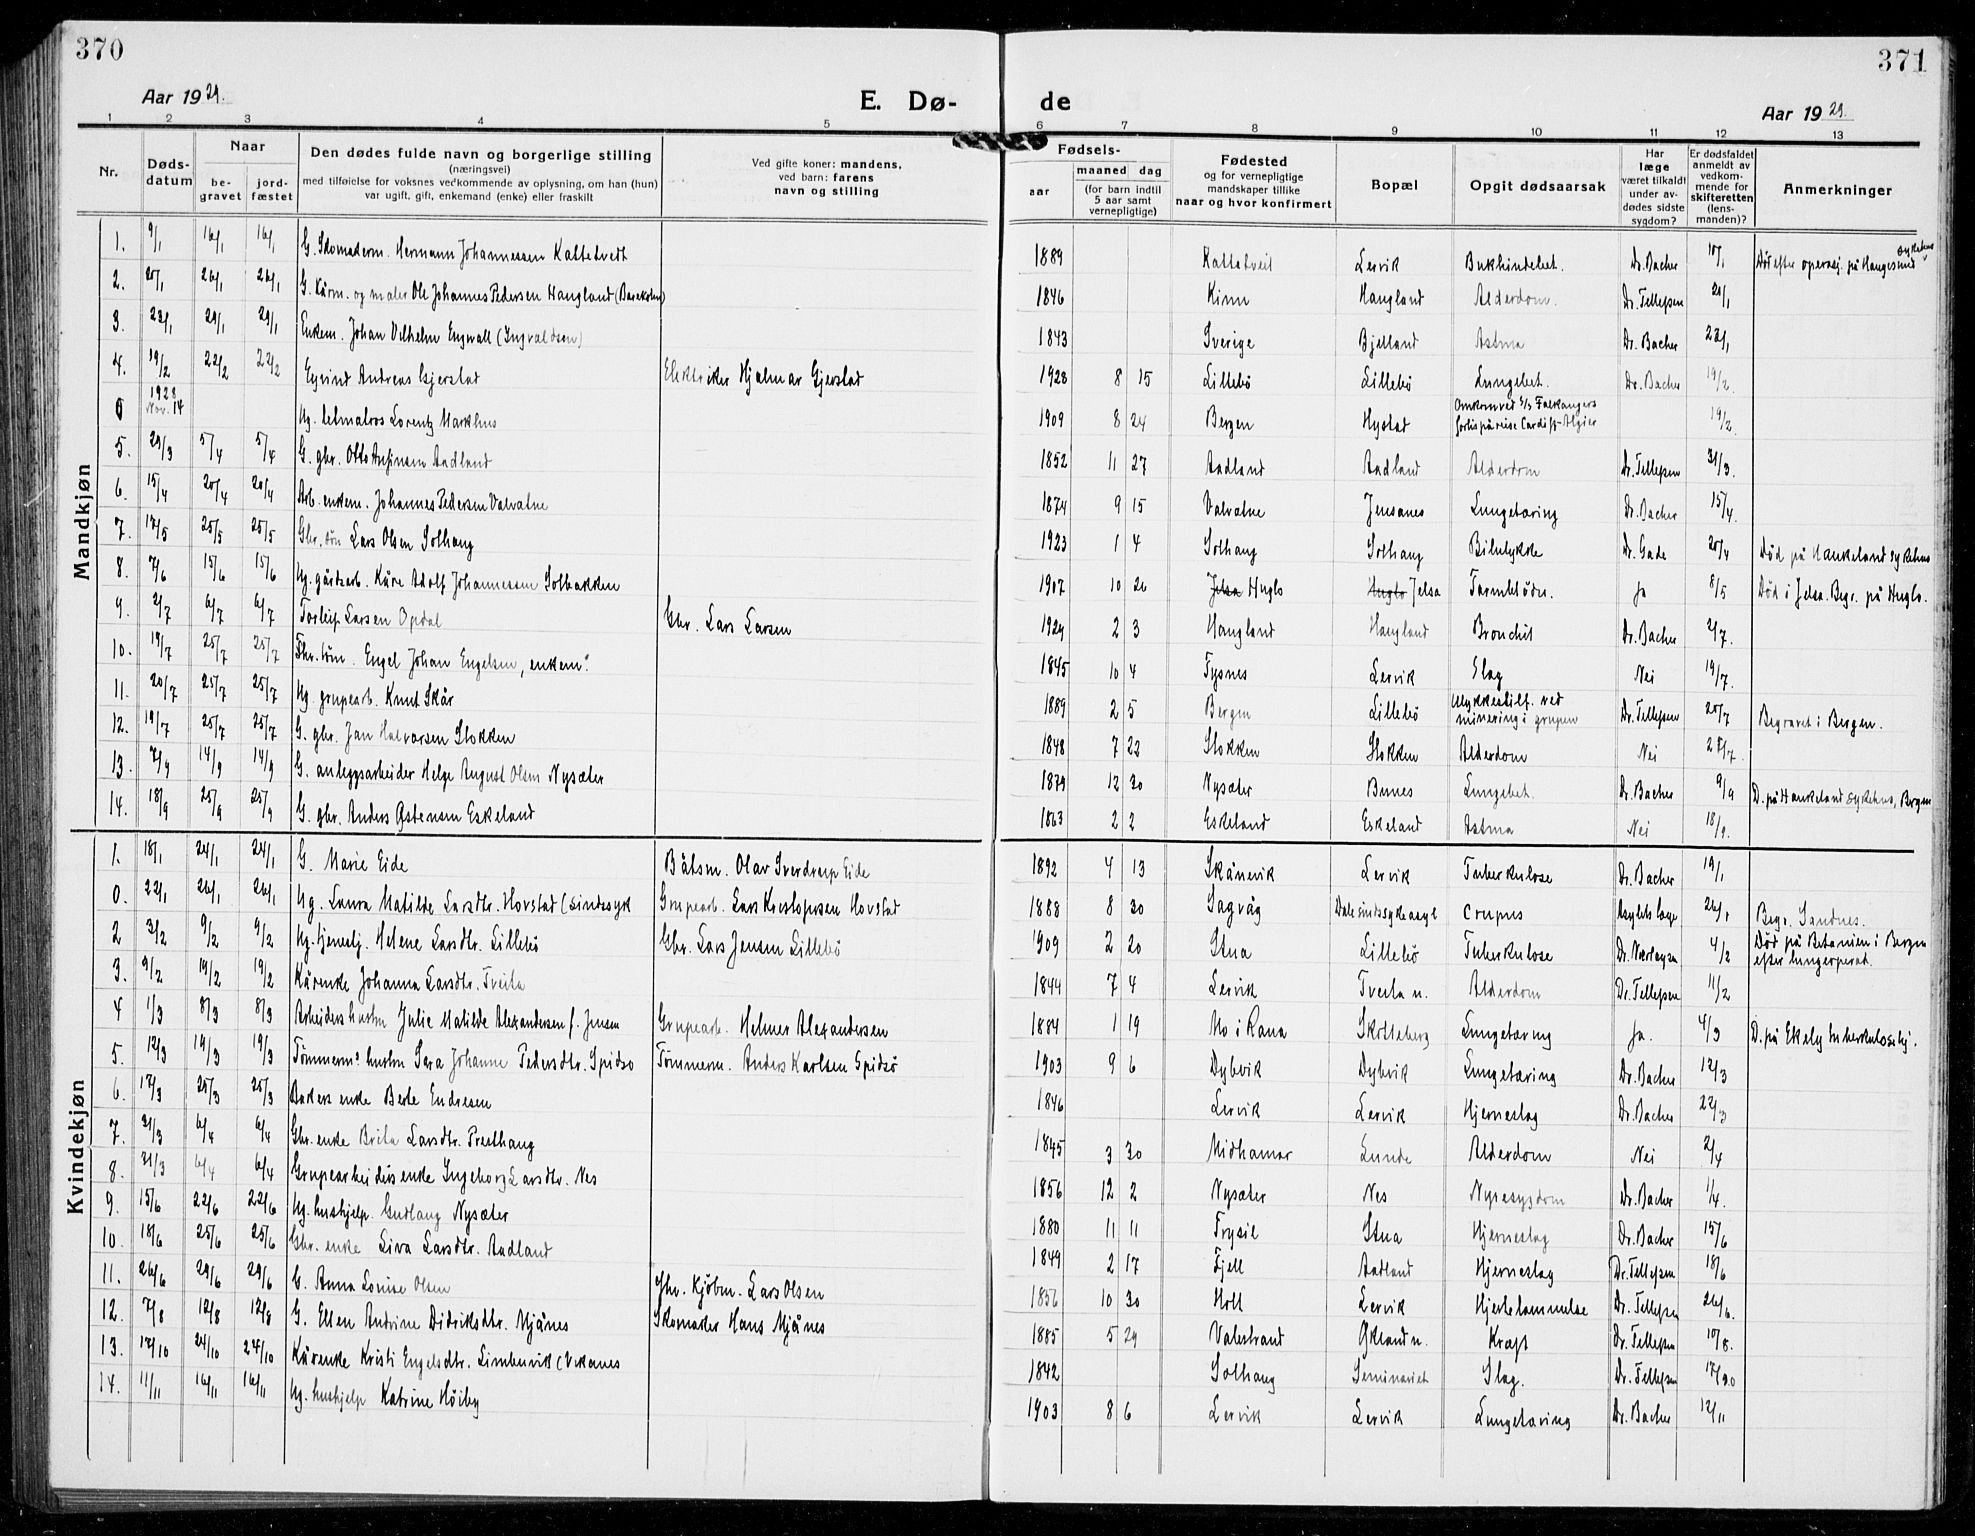 370
371
Aar 1929.
E. Dø-
de
Aar 1929.
1 2 3 4 5 6 7 8 9 10 11 12 13
Nr.
Døds-
datum
Naar
be-
gravet
jord-
fæstet
Den dødes fulde navn og borgerlige stilling
(næringsvei)
med tilføielse for voksnes vedkommende av oplysning, om han (hun)
var ugift, gift, enkemand (enke) eller fraskilt
Ved gifte koner: mandens,
ved barn: farens
navn og stilling
Fødsels-
aar
maaned dag
(for barn indtil
5 aar samt
vernepligtige)
Fødested
og for vernepligtige
mandskaper tillike
naar og hvor konfirmert
Bopæl
Opgit dødsaarsak
Har
læge
været tilkaldt
under av-
dødes sidste
sygdom?
Er dødsfaldet
anmeldt av
vedkom-
mende for
skifteretten
(lens-
manden)?
Anmerkninger
Mandkjøn
1. 9/1 16/1 16/1 G. Skomaderm. Hermann Johannessen Kattetvedt 1889 Kattetveit Lervik Bukhindebet. Dr. Bacher 10/1 Død efter operasj. på Haugesund sykehus
2. 20/1 26/1 26/1 G. Kårm. og maler Ole Johannes Pedersen Haugland 1846 Kinn Haugland Alderdom. Dr. Tellefsen 21/1
3. 23/1 29/1 29/1 Enkem. Johan Vilhelm Engwall (Ingvaldsen) 1843 Sverige Bjelland Astma Dr. Bacher 23/1
4. 19/2 22/2 22/2 Eyvind Andreas Gjerstad Elektriker Hjalmar Gjerstad 1928 8 15 Lillebö Lillebö Lungebet. Dr. Bacher 19/2
0 1928 Nov. 14 Ug. letmatros Lorentz Markhus 1909 8 24 Bergen Hystad Omkom ved s/s Falkangers forlis på reise Cardiff-Algier 19/2
5. 29/3 5/4 5/4 G. gbr. Otto Anfinsen Aadland 1852 11 27 Aadland Aadland Alderdom Dr. Tellefsen 31/3
6. 15/4 20/4 20/4 Arb. enkem. Johannes Pedersen Valvatne 1874 9 15 Valvatne Jensanes Lungetæring Dr. Bacher 15/4
7. 17/5 25/5 25/5 Gbr. søn Lars Olsen Solhaug 1923 1 4 Solhaug Solhaug Bilulykke Dr. Gade 20/4 Død på Haukeland sykehus
8. 7/6 15/6 15/6 Ug. gårdsarb. Kåre Adolf Johannessen Solbakken 1907 10 26 Jelsa Huglo Huglo Jelsa Tarmblødn. Ja 8/5 Død i Jelsa. Begr. på Huglo.
9. 2/7 6/7 6/7 Torleip Larsen Opdal Gbr. Lars Larsen 1929 2 3 Haugland Haugland Bronchit Dr. Bacher 2/7.
10. 19/7 25/7 25/7 Engel Johan Engelsen, enkem. 1845 10 4 Tysnes Lervik Slag Nei 19/7.
11. 20/7 25/7 25/7 Ug. grupearb. Knut Skår 1889 2 5 Bergen Lillebö Ulykkestilf. ved minering i grupen Dr. Tellefsen 20/7 Begravet i Bergen.
12. 19/7 25/7 25/7 G. gbr. Jan Halvorsen Stokken 1848 7 22 Stokken Stokken Alderdom Nei
13. 7/9 14/9 14/9 G. anleggsarbeider Helge August Olsen Nysæter 1879 12 30 Nysæter Bunes Lungebet. Dr. Bacher 9/9 D. på Haukeland sykehus, Bergen
14. 18/9 25/9 25/9 G. gbr. Anders Østensen Eskeland 1863 2 2 Eskeland Eskeland Astma Nei 18/9.
Kvindekjøn
1. 18/1 24/1 24/1 G. Marie Eide Båtsm. Olav Sverdrup Eide 1892 4 13 Skånevik Lervik Tuberkulose Dr. Bacher 19/1
0. 22/1 26/1 26/1 Ug. Laura Matilde Larsdtr. Hovstad (sindssyk Grupearb. Lars Kristophersen Hovstad 1888 8 30 Sagvåg Dale sindssykeasyl Crupus Asylets læge 26/1 Begr. Sandnes.
2 3/2 9/2 9/2 Ug. tjenestj. Helene Larsdtr. Lillebö Gbr. Lars Jensen Lillebö 1909 2 20 Stua Lillebö Tuberkulose 4/2 Død på Betanien i Bergen efter lungeoperat.
3. 9/2 19/2 19/2 Kårenke Johanna Larsdtr. Tveita 1844 7 4 Lervik Tveita n. Alderdom Dr. Tellefsen 11/2
4 1/3 8/3 8/3 Arbeiders hustru Julie Matilde Alexandersen f. Jensen Grupearb. Helmer Alexandersen 1884 1 19 Mo i Rana Skotteberg Lungetæring Ja. 4/3 D. på Ekely tuberkulosehj.
5. 12/3 19/3 19/3 Tømmerm.s hustru Sara Johanne Pedersdtr. Spidsø Tømmerm. Anders Karlsen Spidsø 1903 9 6 Dybvik Dybvik Lungetæring Dr. Bacher 12/3
6. 17/3 25/3 25/3 Bakers enke Berte Endresen 1846 Lervik Lervik Hjerneslag Dr. Bacher 22/3
7. 31/3 6/4 6/4 Gbr. enke Brita Larsdtr. Presthaug 1845 3 30 Midhamar Lunde Alderdom Nei 2/4
8. 31/3 6/4 6/4 Grupearbeiders enke Ingeborg Larsdtr. Nes 1856 12 2 Nysæter Nes Nyresygdom Dr. Bacher 1/4.
9. 15/6 22/6 22/6 Ug. hushjelp Gudlaug Nysæter 1880 11 11 Trysil Stua Hjerneslag Dr. Bacher 15/6
10. 18/6 25/6 25/6 Gbr. enke Siva Larsdtr. Aadland 1849 2 17 Fjell Aadland Hjerneslag Dr. Tellefsen 18/6
11. 26/6 29/6 29/6 G. Anna Lovise Olsen Kjøbm. Lars Olsen 1856 10 30 Holt Lervik Hjertelammelse Dr. Tellefsen 26/6.
12. 7/8 12/8 12/8 G. Ellen Andrine Didriksdtr. Mjånes Skomaker Hans Mjånes 1885 5 29 Valestrand Økland n. Kræft Dr. Tellefsen 10/8.
13. 17/10 24/10 24/10 Kårenke Kristi Engelsdtr. Limbuvik (Vikanes 1842 Solhaug Seminariet Slag. Dr. Tellefsen
14. 11/11 16/11 16/11 Ug. hushjelp Katrine Höiby 1903 8 6 Lervik Lervik Lungetæring Dr. Bacher 12/11